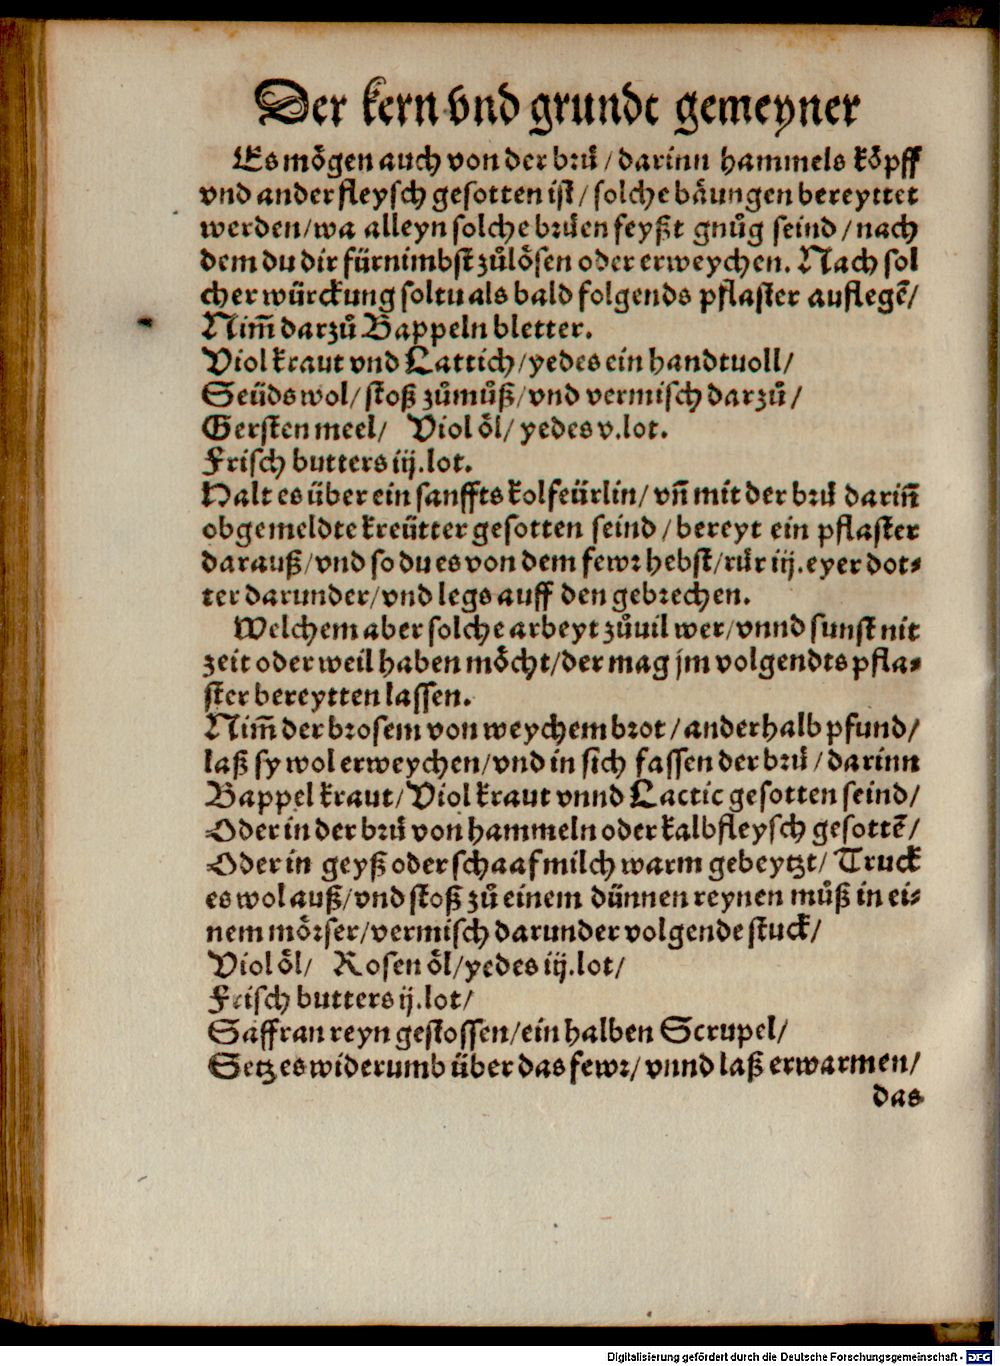 Der kern vnd grundt gemeyner
Es mo᷑gen auch von der bꝛuͤ / darinn hammels koͤpff
vnd ander fleysch gesotten ist / solche baͤungen bereyttet
werden / wa alleyn solche bꝛuͤen feyßt gnuͦg seind / nach
dem du dir fürnimbst zuͦloͤsen oder erweychen. Nach sol
cher würckung soltu als bald folgends pflaster auflegē /
Nim̄ darzuͦ Bappeln bletter.
Viol kraut vnd Lattich / yedes ein handtuoll /
Seüds wol / stoß zuͦmuͦß / vnd vermisch darzuͦ /
Gersten meel / Viol oͤl / yedes v. lot.
Frisch butters iij. lot.
Halt es über ein sanffts kolfeürlin / vn̄ mit der bꝛuͤ darin̄
obgemeldte kreütter gesotten seind / bereyt ein pflaster
darauß / vnd so du es von dem fewꝛ hebst / ruͤr iij. eyer dot⸗
ter darunder / vnd legs auff den gebꝛechen.
Welchem aber solche arbeyt zuͦuil wer / vnnd sunst nit
zeit oder weil haben moͤcht / der mag jm volgendts pfla⸗
ster bereytten lassen.
Nim̄ der bꝛosem von weychem bꝛot / anderhalb pfund /
laß sy wol erweychen / vnd in sich fassen der bꝛuͤ / darinn
Bappel kraut / Viol kraut vnnd Lactic gesotten seind /
Oder in der bꝛuͤ von hammeln oder kalbfleysch gesottē /
Oder in geyß oder schaafmilch warm gebeytzt / Truck
es wol auß / vnd stoß zuͦ einem dünnen reynen muͦß in ei⸗
nem moͤꝛser / vermisch darunder volgende stuck /
Viol oͤl / Rosen oͤl / yedes iij. lot /
Frisch butters ij. lot /
Saffran reyn gestossen / ein halben Scrupel /
Setz es widerumb über das fewꝛ / vnnd laß erwarmen /
das
Digitalisierung gefördert durch die Deutsche Forschungsgemeinschaft - DFG